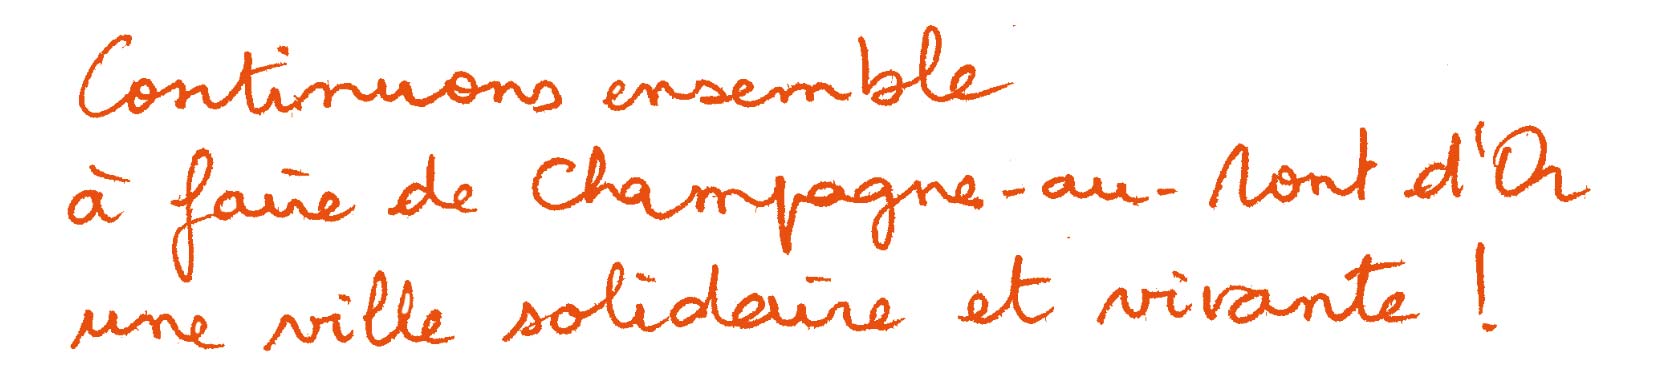 Continuons ensemble
à faire de Champagne-au-Mont d'Or
une ville solidaire et vivante !